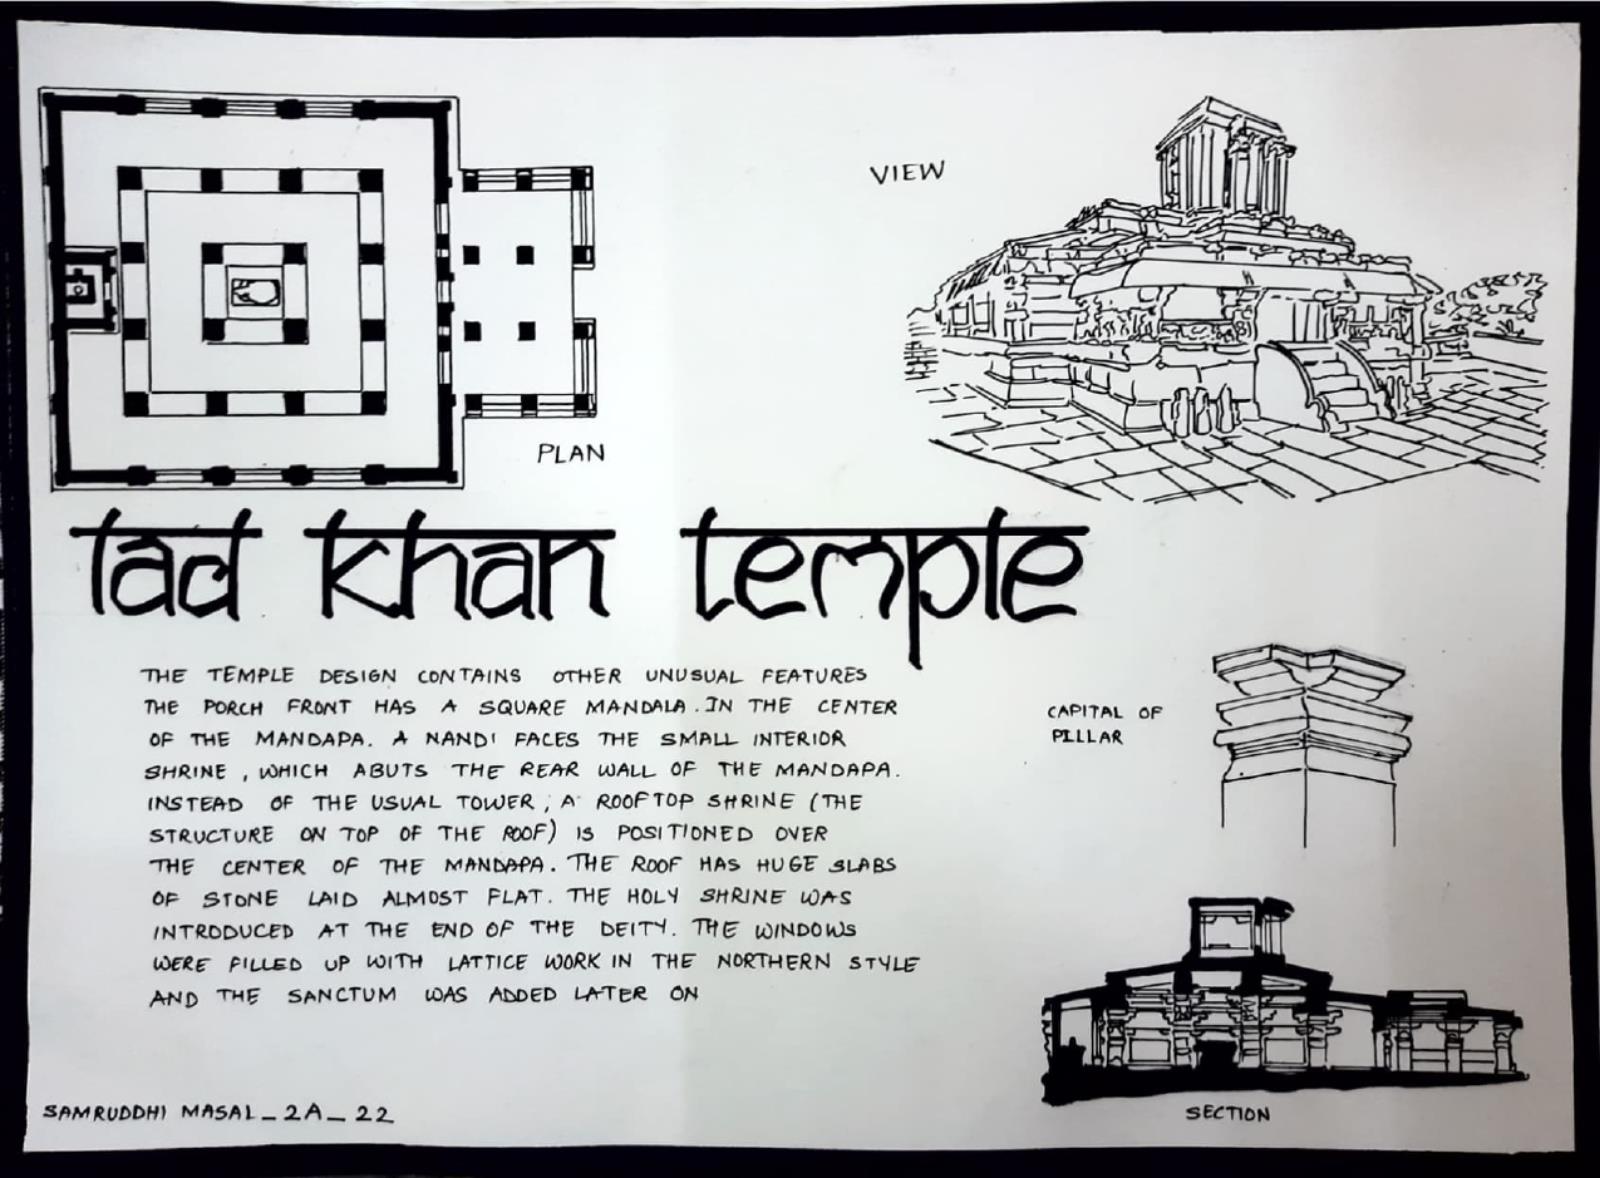 VIEW
PLAN
lad khan temple
THE TEMPLE DESIGN CONTAINS OTHER UNUSUAL FEATURES
THE PORCH FRONT HAS A SQUARE MANDALA. IN THE CENTER
OF THE MANDAPA. A NANDI FACES THE SMALL INTERIOR
SHRINE, WHICH ABUTS THE REAR WALL OF THE MANDAPA.
INSTEAD OF THE USUAL TOWER, A ROOFTOP SHRINE (THE
STRUCTURE ON TOP OF THE ROOF) IS POSITIONED OVER
THE CENTER OF THE MANDAPA. THE ROOF HAS HUGE SLABS
OF STONE LAID ALMOST FLAT. THE HOLY SHRINE WAS
INTRODUCED AT THE END OF THE DEITY. THE WINDOWS
WERE FILLED UP WITH LATTICE WORK IN THE NORTHERN STYLE
AND THE SANCTUM WAS ADDED LATER ON
CAPITAL OF
PILLAR
SECTION
SAMRUDDHI MASAL_2A_22